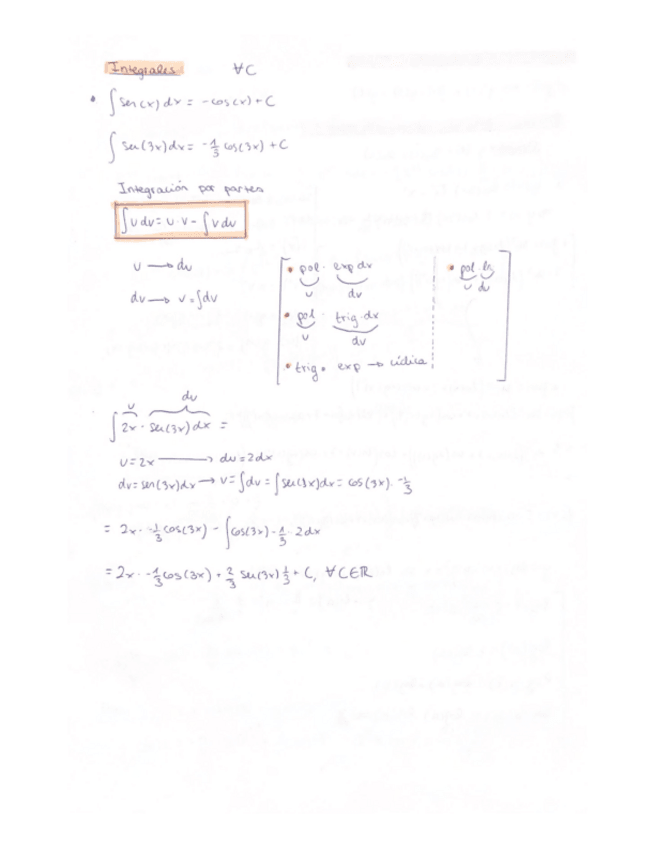 Integrales ∀C
• ∫ sen(x) dx = -cos(x) + C
∫ sen(3x) dx = -1/3 cos(3x) + C
Integración por partes
∫u dv = u·v - ∫v du
u → du
dv → v = ∫dv
• pol · exp dx
u dv
• pol · trig · dx
u dv
• trig · exp → cíclica
• pol · ln
u dv
u dv
∫ 2x · sen(3x) dx =
u = 2x → du = 2dx
dv = sen(3x) dx → v = ∫dv = ∫sen(3x) dx = cos(3x) · -1/3
= 2x · -1/3 cos(3x) - ∫cos(3x) · -1/3 · 2dx
= 2x · -1/3 cos(3x) + 2/3 sen(3x) 1/3 + C, ∀C∈ℝ